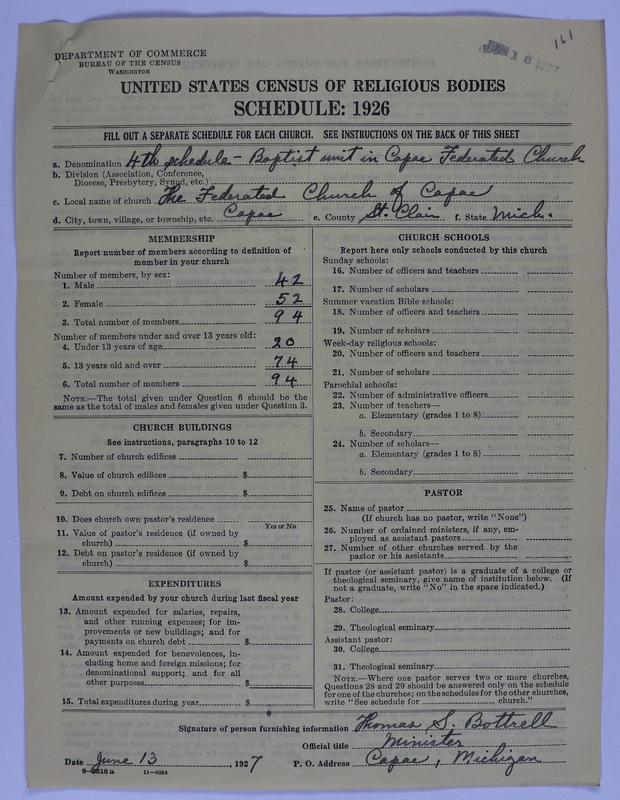 161
JUN 16 1927
DEPARTMENT OF COMMERCE
BUREAU OF THE CENSUS
WASHINGTON
UNITED STATES CENSUS OF RELIGIOUS BODIES
SCHEDULE: 1926
FILL OUT A SEPARATE SCHEDULE FOR EACH CHURCH. SEE INSTRUCTIONS ON THE BACK OF THIS SHEET
a. Denomination 4th schedule - Baptist unit in Capac Federated Church
b. Division (Association, Conference,
Diocese, Presbytery, Synod, etc.)
c. Local name of church The Federated Church of Capac
d. City, town, village, or township, etc. Capac e. County St. Clair f. State Mich.
MEMBERSHIP
Report number of members according to definition of
member in your church
Number of members, by sex:
1. Male 42
2. Female 52
3. Total number of members 94
Number of members under and over 13 years old:
4. Under 13 years of age 20
5. 13 years old and over 74
6. Total number of members 94
NOTE.—The total given under Question 6 should be
same as the total of males and females given under Question 3.
CHURCH BUILDINGS
See instructions, paragraphs 10 to 12
7. Number of church edifices
8. Value of church edifices $
9. Debt on church edifices $
10. Does church own pastor's residence
Yes or No
11. Value of pastor's residence (if owned by
church) $
12. Debt on pastor's residence (if owned by
church) $
EXPENDITURES
Amount expended by your church during last fiscal year
13. Amount expended for salaries, repairs,
and other running expenses; for im-
provements or new buildings; and for
payments on church debt $
14. Amount expended for benevolences, in-
cluding home and foreign missions; for
denominational support; and for all
other purposes $
15. Total expenditures during year $
CHURCH SCHOOLS
Report here only schools conducted by this church
Sunday schools:
16. Number of officers and teachers
17. Number of scholars
Summer vacation Bible schools:
18. Number of officers and teachers
19. Number of scholars
Week-day religious schools:
20. Number of officers and teachers
21. Number of scholars
Parochial schools:
22. Number of administrative officers
23. Number of teachers—
a. Elementary (grades 1 to 8)
b. Secondary
24. Number of scholars—
a. Elementary (grades 1 to 8)
b. Secondary
PASTOR
25. Name of pastor
(If church has no pastor, write "None")
26. Number of ordained ministers, if any, em-
ployed as assistant pastors
27. Number of other churches served by the
pastor or his assistants
If pastor (or assistant pastor) is a graduate of a college or
theological seminary, give name of institution below. (If
not a graduate, write "No" in the space indicated.)
Pastor:
28. College
29. Theological seminary
Assistant pastor:
30. College
31. Theological seminary
NOTE.—Where one pastor serves two or more churches,
Questions 28 and 29 should be answered only on the schedule
for one of the churches; on the schedules for the other churches,
write "See schedule for church."
Signature of person furnishing information Thomas S. Bottrell
Official title Minister
Date June 13, 1927 P. O. Address Capac, Michigan
8-2518a 11-9324